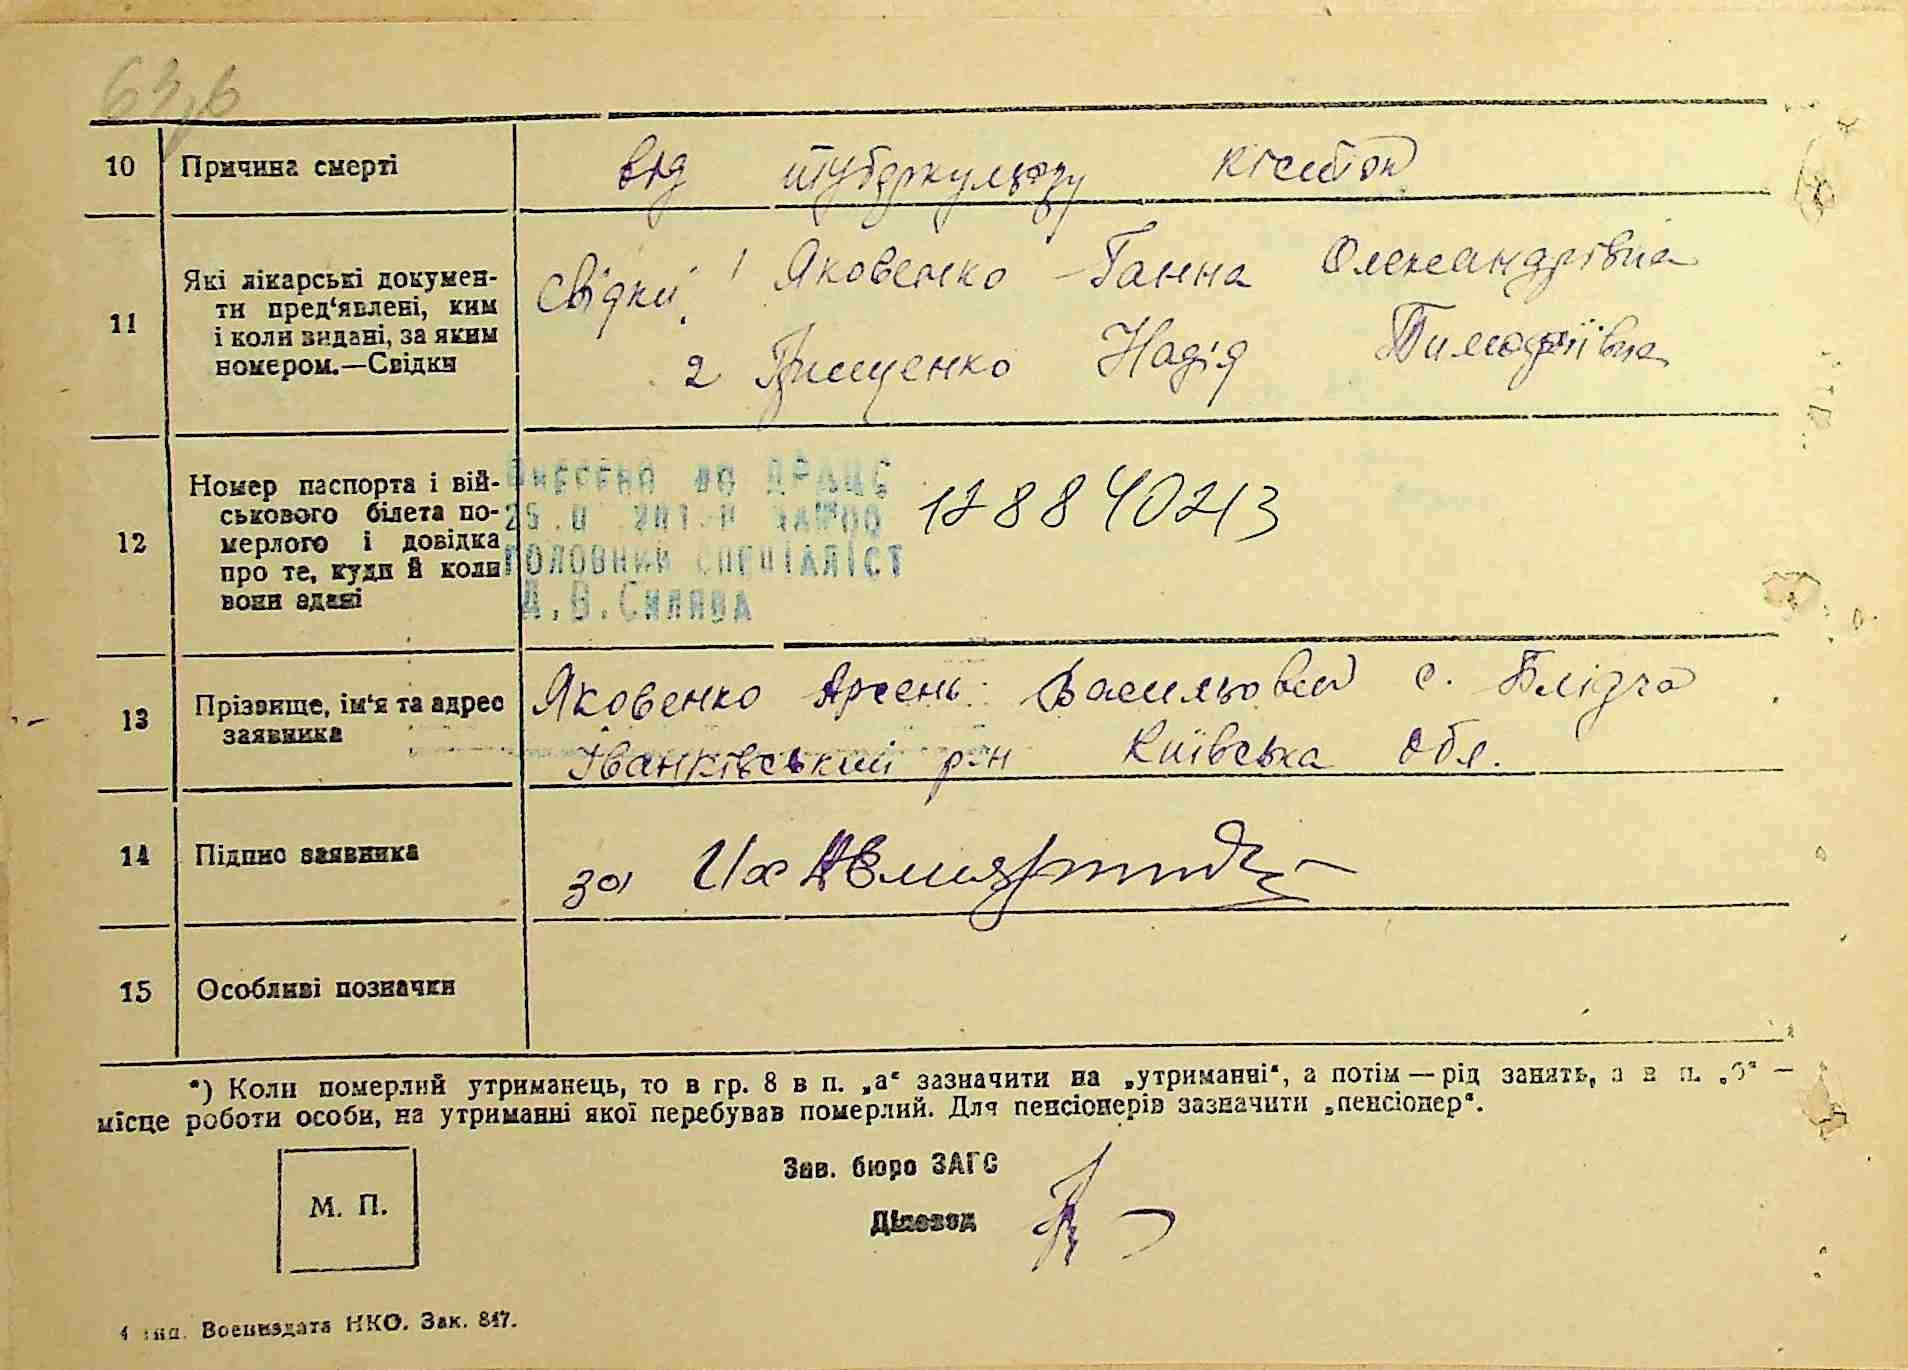 63,6
10 Причина смерті від туберкульозу кісток
11 Які лікарські докумен-
ти пред‘явлені, ким
і коли видані, за яким
номером.—Свідки
Свідки: 1 Яковенко Ганна Олександрівна
2 Грищенко Надія Тимофіївна
12 Номер паспорта і вій-
ськового білета по-
мерлого і довідка
про те, куди й коли
вони здані
Внесено до ДРАЦС
ГОЛОВНИЙ СПЕЦІАЛІСТ
Д.В.Силява
13 Прізвище, ім‘я та адрес
заявника
Яковенко Арсень Васильович с. Блідча
Іванківський р-н Київська обл.
14 Підпис заявника
за
15 Особливі позначки
*) Коли померлий утриманець, то в гр. 8 в п. „а“ зазначити на „утриманні“, а потім — рід занять, а в п. „б“ —
місце роботи особи, на утриманні якої перебував померлий. Для пенсіонерів зазначити „пенсіонер“.
М. П.
Зав. бюро ЗАГС
Діловод
Воениздата НКО. Зак. 847.